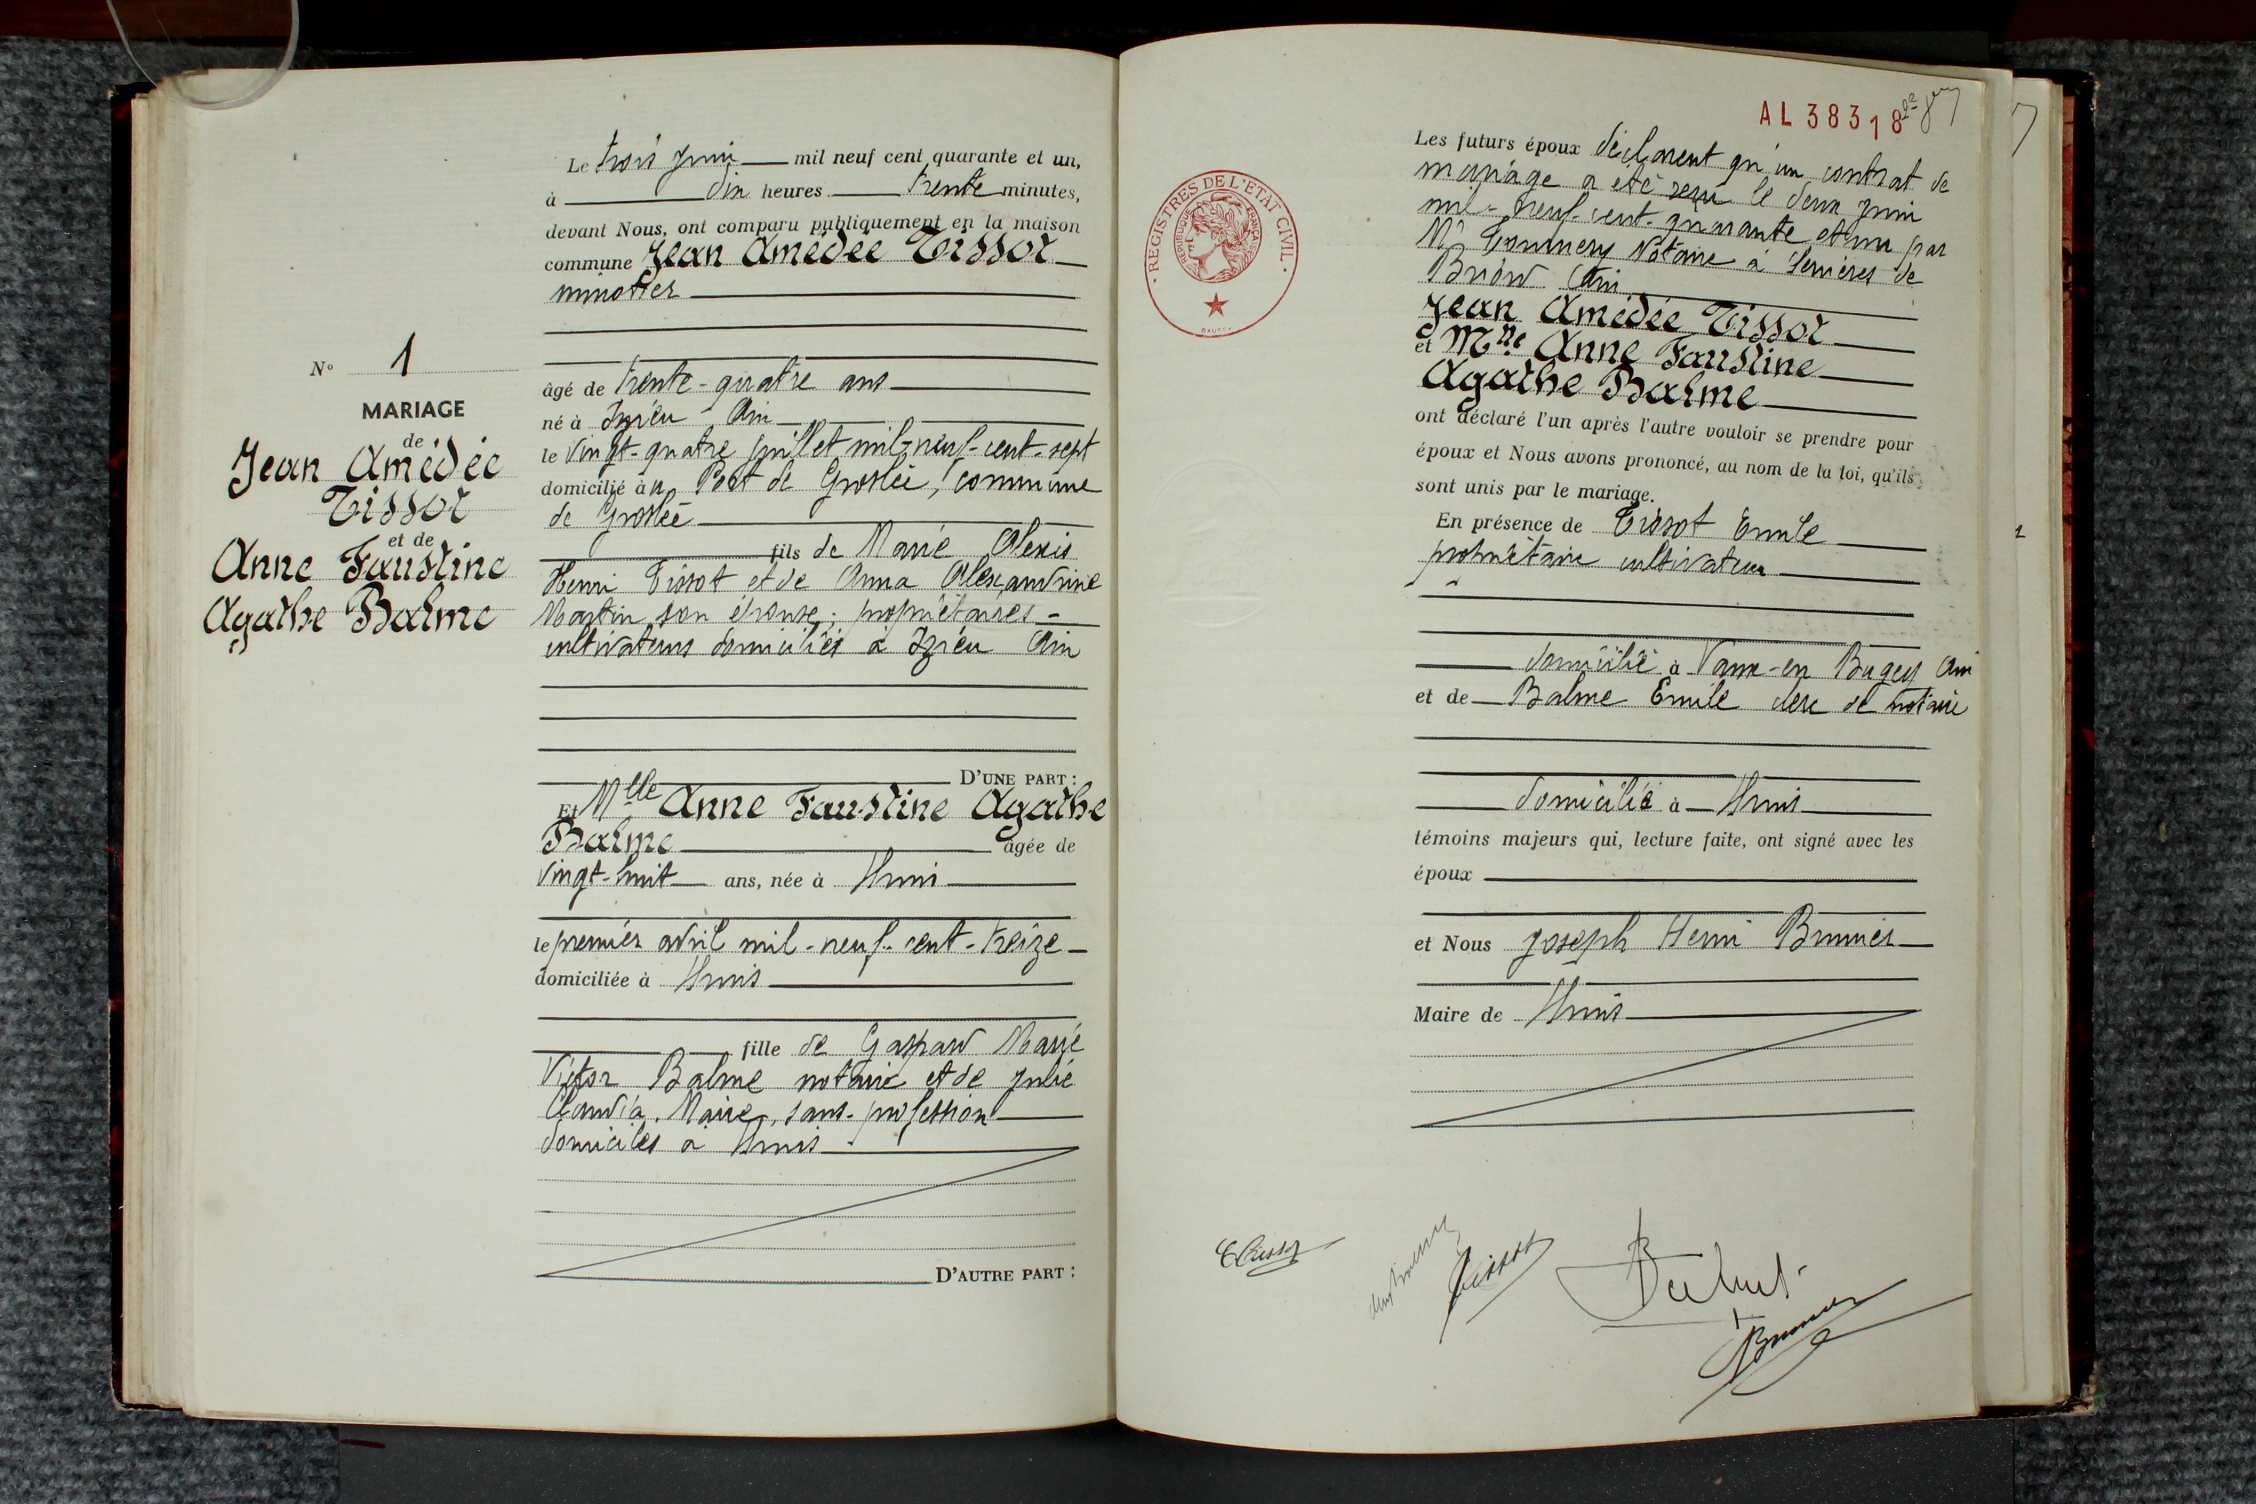 Le trois juin mil neuf cent quarante et un,
à dix heures trente minutes,
devant Nous, ont comparu publiquement en la maison
commune Jean Amédée Tissot
minotier
N° 1
MARIAGE
de
Jean Amédée
Tissot
et de
Anne Faustine
Agathe Balme
âgé de trente-quatre ans
né à Izieu Ain
le vingt-quatre juillet mil-neuf-cent-sept
domicilié au Port de Groslée, commune
de Groslée
fils de Marie Alexis
Henri Tissot et de Anna Alexandrine
Martin son épouse, propriétaires-
cultivateurs domiciliés à Izieu Ain
D'UNE PART :
Et Mlle Anne Faustine Agathe
Balme âgée de
vingt-huit ans, née à Lhuis
le premier avril mil-neuf-cent-treize
domiciliée à Lhuis
fille de Gaspard Marie
Victor Balme notaire et de Julie
Claudia Maire, sans-profession
domiciliés à Lhuis
D'AUTRE PART :
REGISTRES DE L'ETAT CIVIL
AL 38318
Les futurs époux déclarent qu'un contrat de
mariage a été reçu le deux juin
mil-neuf-cent-quarante et un par
Me Notaire à Serrières de
Briord Ain
Jean Amédée Tissot
et Mlle Anne Faustine
Agathe Balme
ont déclaré l'un après l'autre vouloir se prendre pour
époux et Nous avons prononcé, au nom de la loi, qu'ils
sont unis par le mariage.
En présence de Tissot Emile
propriétaire cultivateur
domicilié à Vaux-en Bugey Ain
et de Balme Emile clerc de notaire
domicilié à Lhuis
témoins majeurs qui, lecture faite, ont signé avec les
époux
et Nous Joseph Henri Brunier
Maire de Lhuis
Tissot
Brunier